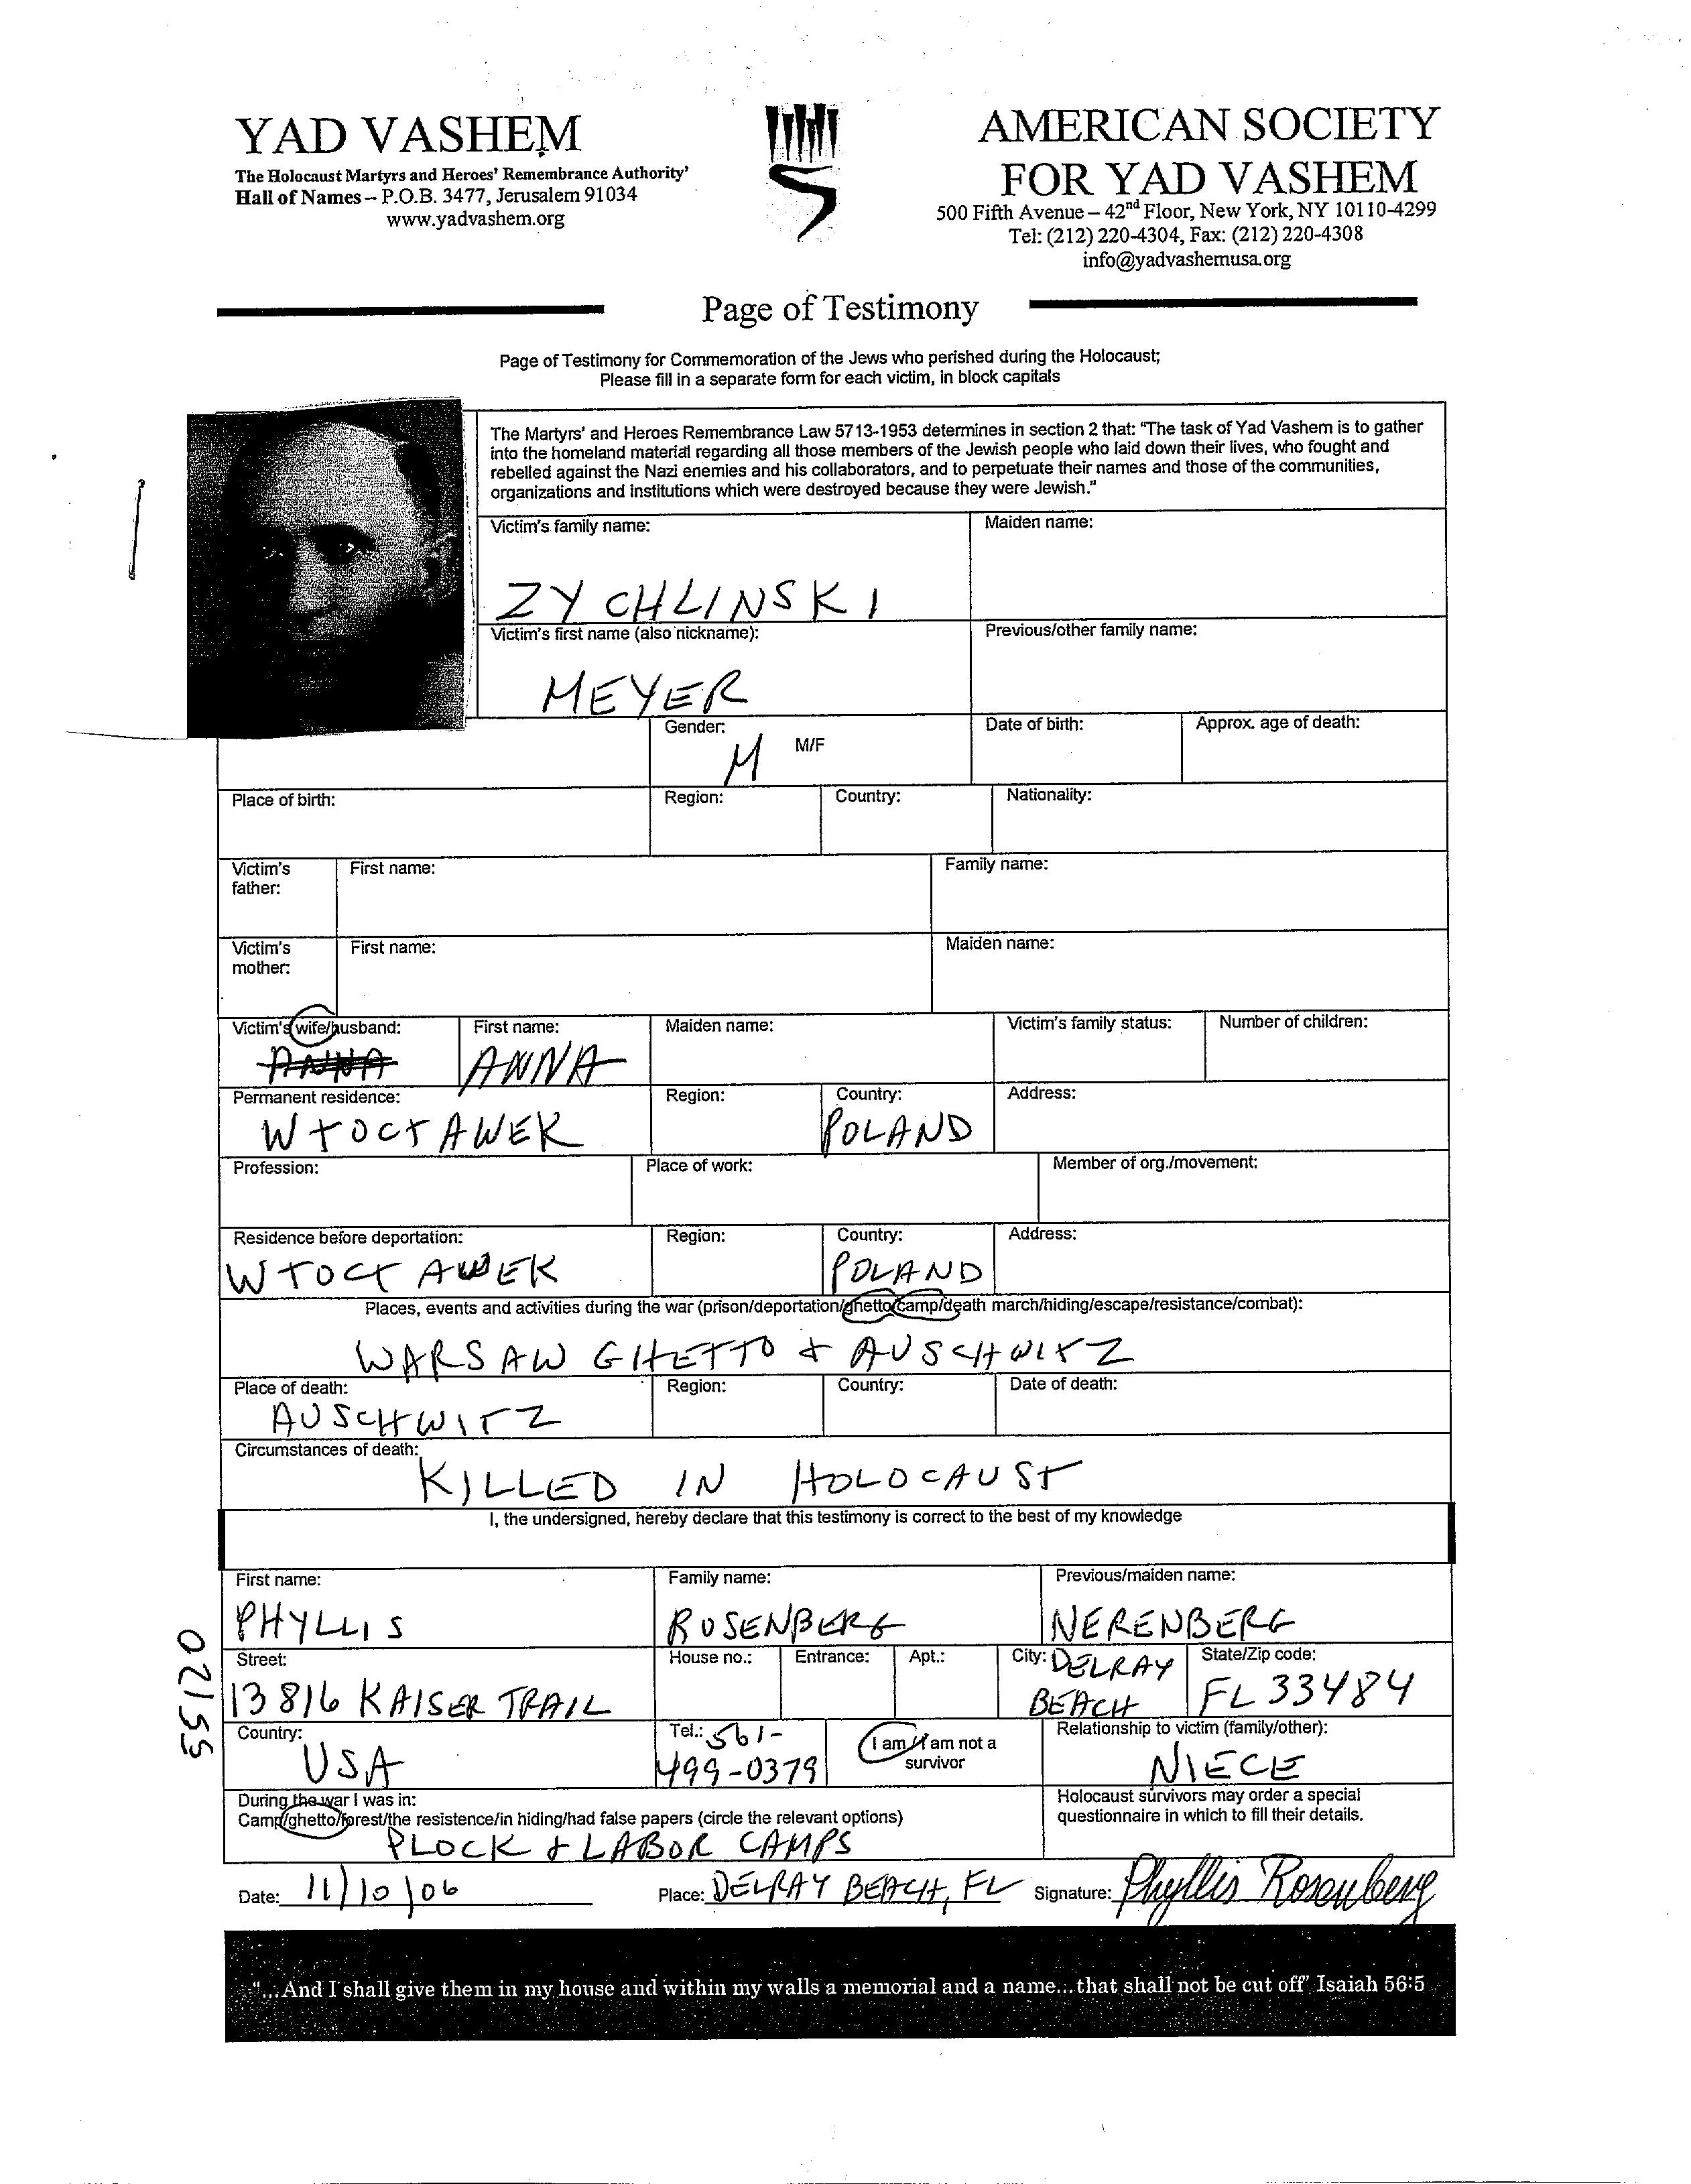 YAD VASHEM
The Holocaust Martyrs and Heroes' Remembrance Authority'
Hall of Names – P.O.B. 3477, Jerusalem 91034
www.yadvashem.org
AMERICAN SOCIETY
FOR YAD VASHEM
500 Fifth Avenue – 42nd Floor, New York, NY 10110-4299
Tel: (212) 220-4304, Fax: (212) 220-4308
info@yadvashemusa.org
Page of Testimony
Page of Testimony for Commemoration of the Jews who perished during the Holocaust;
Please fill in a separate form for each victim, in block capitals
The Martyrs' and Heroes Remembrance Law 5713-1953 determines in section 2 that: "The task of Yad Vashem is to gather
into the homeland material regarding all those members of the Jewish people who laid down their lives, who fought and
rebelled against the Nazi enemies and his collaborators, and to perpetuate their names and those of the communities,
organizations and institutions which were destroyed because they were Jewish."
Victim's family name: Maiden name:
ZYCHLINSKI
Victim's first name (also nickname): Previous/other family name:
MEYER
Gender: Date of birth: Approx. age of death:
M M/F
Place of birth: Region: Country: Nationality:
Victim's First name: Family name:
father:
Victim's First name: Maiden name:
mother:
Victim's wife/husband: First name: Maiden name: Victim's family status: Number of children:
ANNA ANNA
Permanent residence: Region: Country: Address:
WTOCTAWEK POLAND
Profession: Place of work: Member of org./movement:
Residence before deportation: Region: Country: Address:
WTOCTAWEK POLAND
Places, events and activities during the war (prison/deportation/ghetto/camp/death march/hiding/escape/resistance/combat):
WARSAW GHETTO + AUSCHWITZ
Place of death: Region: Country: Date of death:
AUSCHWITZ
Circumstances of death:
KILLED IN HOLOCAUST
I, the undersigned, hereby declare that this testimony is correct to the best of my knowledge
First name: Family name: Previous/maiden name:
PHYLLIS ROSENBERG NERENBERG
Street: House no.: Entrance: Apt.: City: DELRAY State/Zip code:
13816 KAISER TRAIL BEACH FL 33484
Country: Tel.: 561- I am/I am not a Relationship to victim (family/other):
USA 499-0379 survivor NIECE
During the war I was in: Holocaust survivors may order a special
Camp/ghetto/forest/the resistence/in hiding/had false papers (circle the relevant options) questionnaire in which to fill their details.
PLOCK & LABOR CAMPS
Date: 11/10/06 Place: DELRAY BEACH, FL Signature: Phyllis Rosenberg
"...And I shall give them in my house and within my walls a memorial and a name...that shall not be cut off" Isaiah 56:5
02155